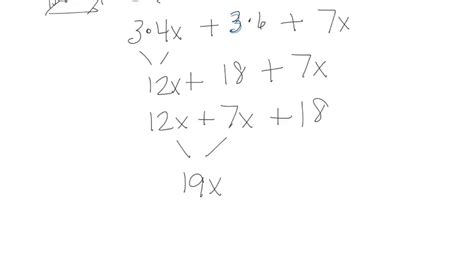 3·4x + 3·6 + 7x
12x + 18 + 7x
12x + 7x + 18
19x